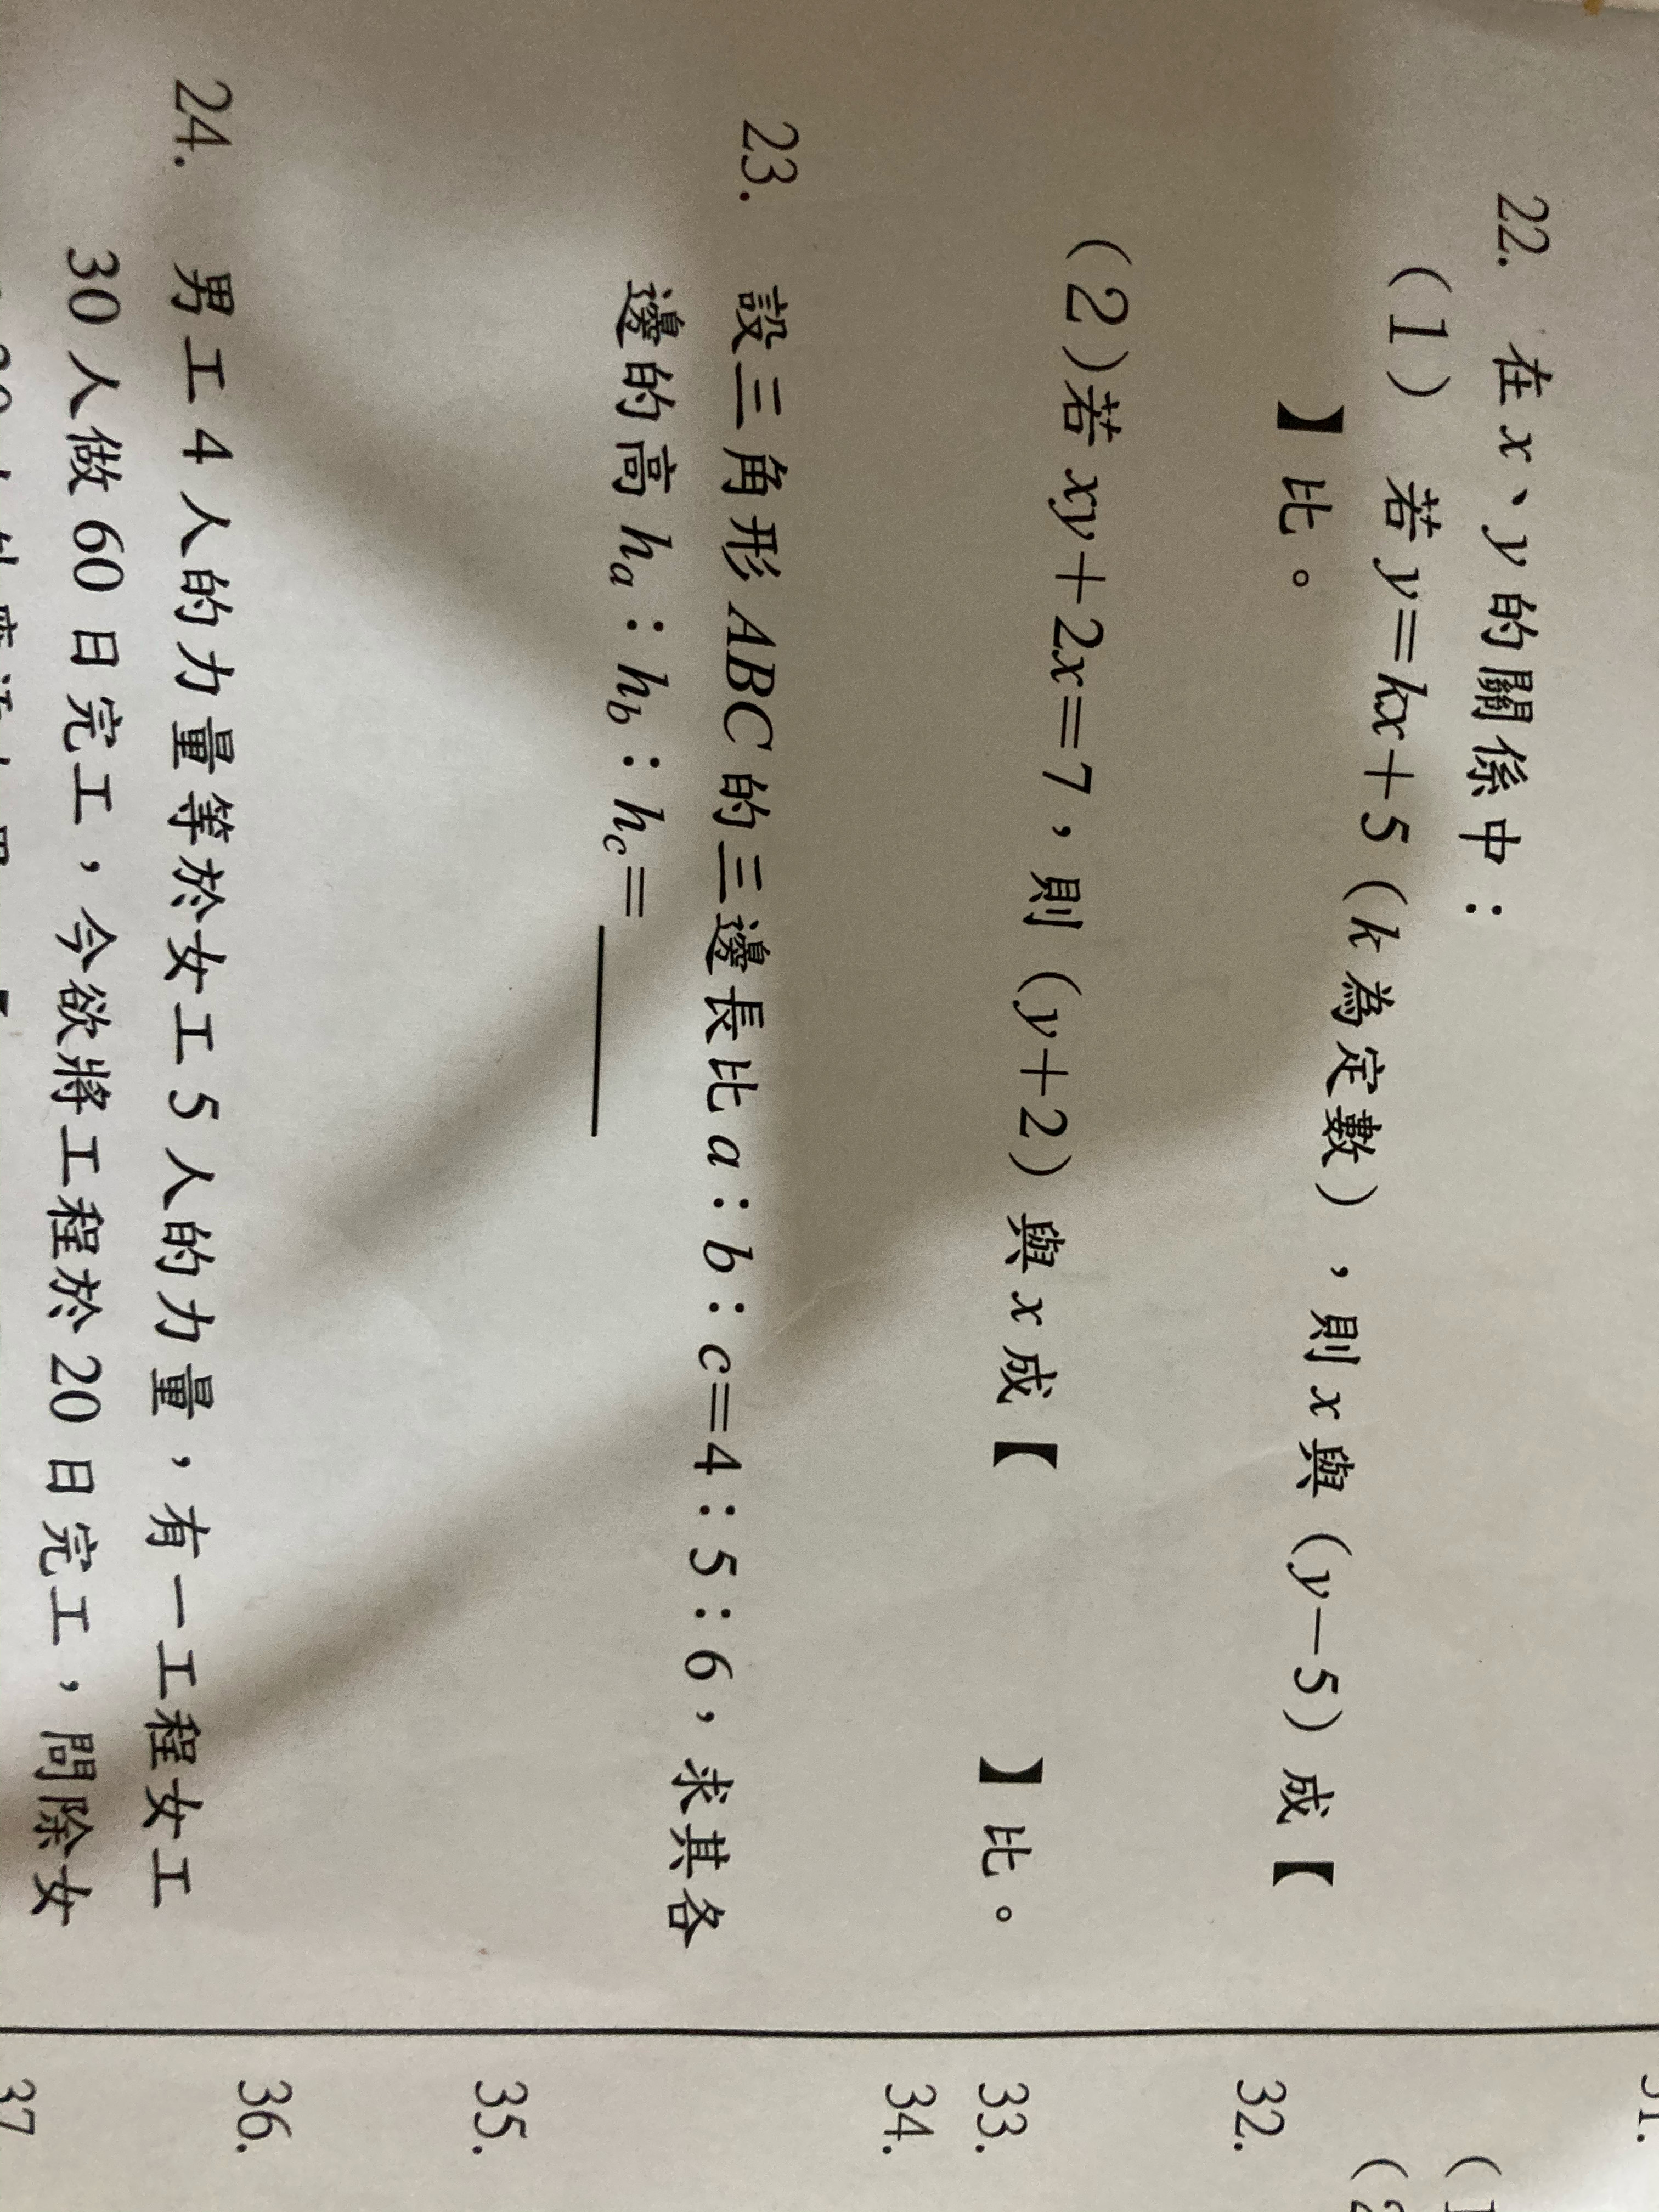 22. 在x、y的關係中：
(1) 若y=kx+5(k為定數)，則x與(y－5)成【
】比。
(2)若xy＋2x＝7，則(y＋2)與x成【　　　】比。
23. 設三角形ABC的三邊長比a：b：c＝4：5：6，求其各
邊的高hₐ：h_b：h_c＝＿＿＿
24. 男工4人的力量等於女工5人的力量，有一工程女工
30人做60日完工，今欲將工程於20日完工，問除女
(1
32.
33.
34.
35.
36.
37